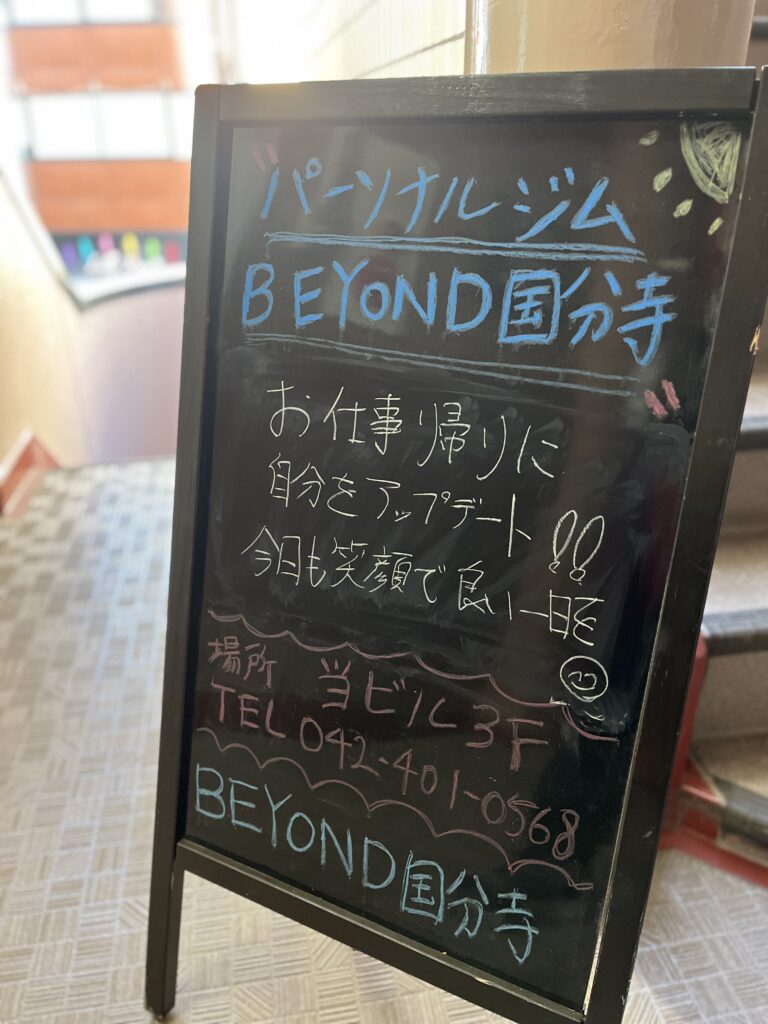 "パーソナルジム
BEYOND国分寺"
お仕事帰りに
自分をアップデート!!
今日も笑顔で良い一日を
場所 当ビル3F
TEL 042-401-0568
BEYOND国分寺